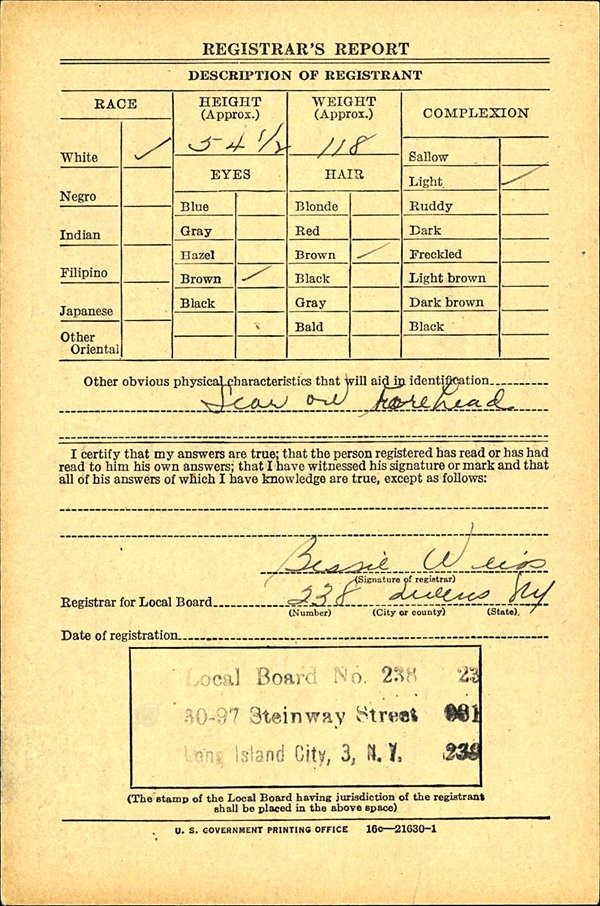 REGISTRAR'S REPORT
DESCRIPTION OF REGISTRANT
RACE
HEIGHT
(Approx.)
WEIGHT
(Approx.)
COMPLEXION
5 4 1/2
118
White ✓
Negro
Indian
Filipino
Japanese
Other
Oriental
EYES
Blue
Gray
Hazel
Brown ✓
Black
HAIR
Blonde
Red
Brown ✓
Black
Gray
Bald
Sallow
Light ✓
Ruddy
Dark
Freckled
Light brown
Dark brown
Black
Other obvious physical characteristics that will aid in identification
Scar on Forehead
I certify that my answers are true; that the person registered has read or has had
read to him his own answers; that I have witnessed his signature or mark and that
all of his answers of which I have knowledge are true, except as follows:
Bessie Weiss
(Signature of registrar)
Registrar for Local Board 238 Queens NY
(Number) (City or county) (State)
Date of registration
Local Board No. 238 23
30-97 Steinway Street 081
Long Island City, 3, N. Y. 238
(The stamp of the Local Board having jurisdiction of the registrant
shall be placed in the above space)
U. S. GOVERNMENT PRINTING OFFICE 16c—21630-1